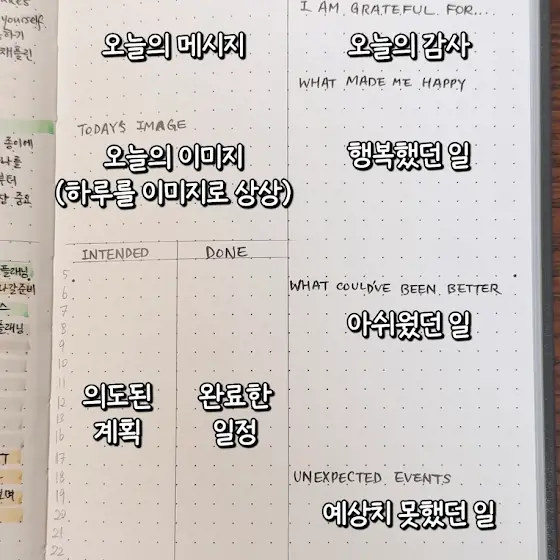 yourself.
하기
오늘의 메시지
TODAY'S IMAGE
오늘의 이미지
(하루를 이미지로 상상)
INTENDED
DONE
5
6
7
8
9
10
11
12
13
16
17
18
19
20
21
22
의도된
계획
완료한
일정
I AM GRATEFUL FOR...
오늘의 감사
WHAT MADE ME HAPPY
행복했던 일
WHAT COULD'VE BEEN BETTER
아쉬웠던 일
UNEXPECTED EVENTS
예상치 못했던 일